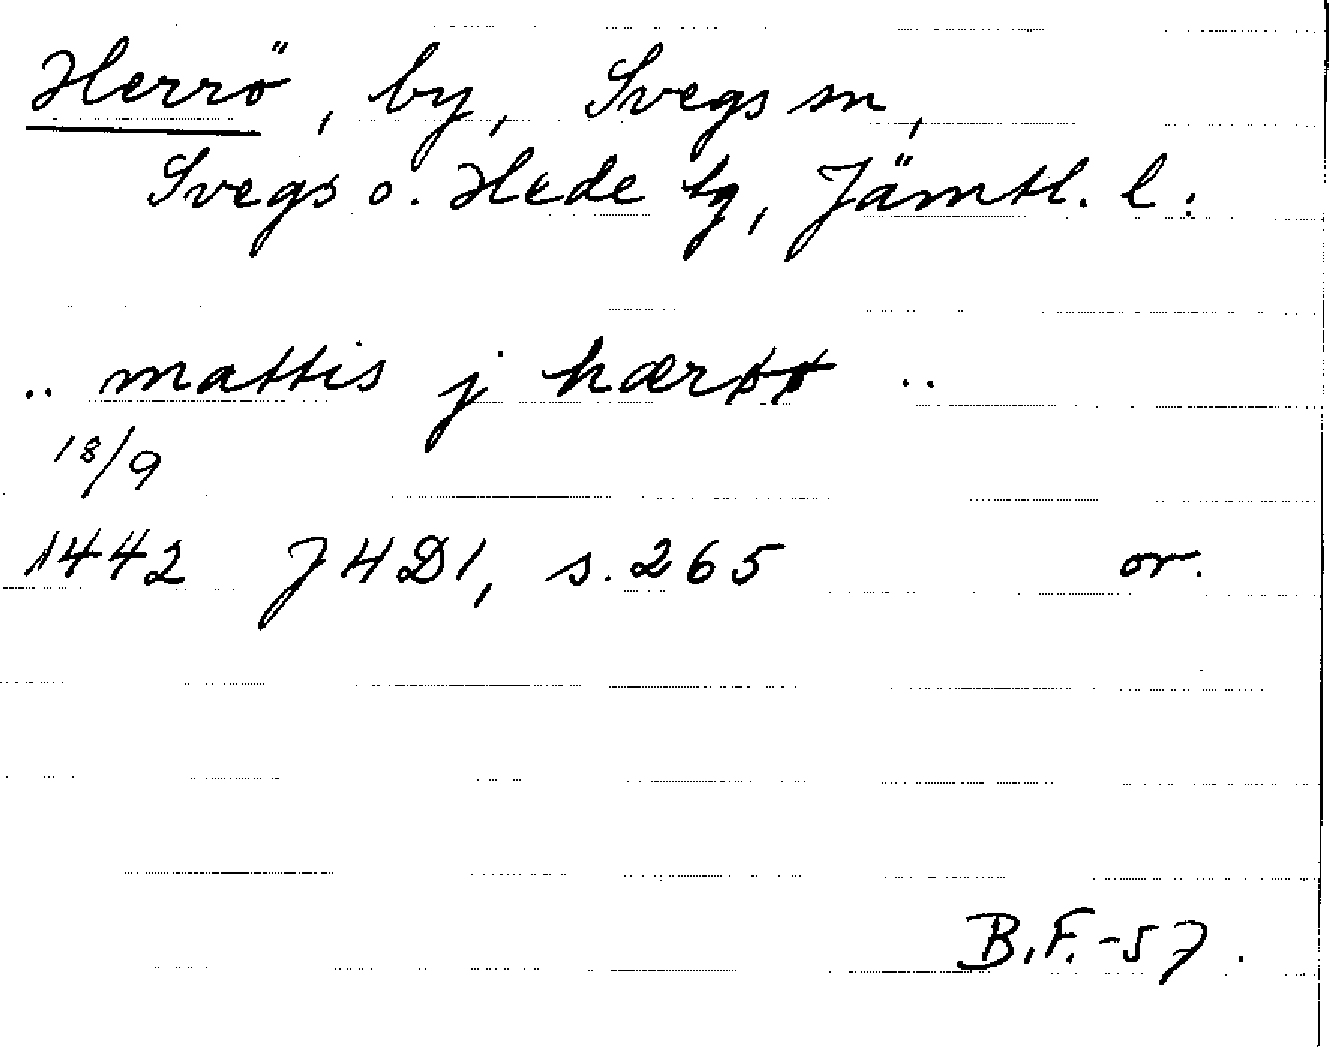 Herrö, by, Svegs sn,
Svegs o. Hede tg, Jämtl. l.
.. mattis j hærøø ..
18/9
1442 JHD1, s. 265 or.
B.F. -57.